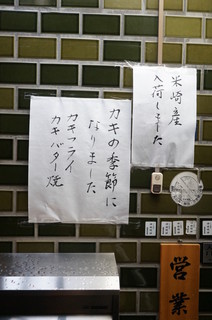 米崎産
入荷しました
カキの季節に
なりました
カキフライ
カキバター焼
営業